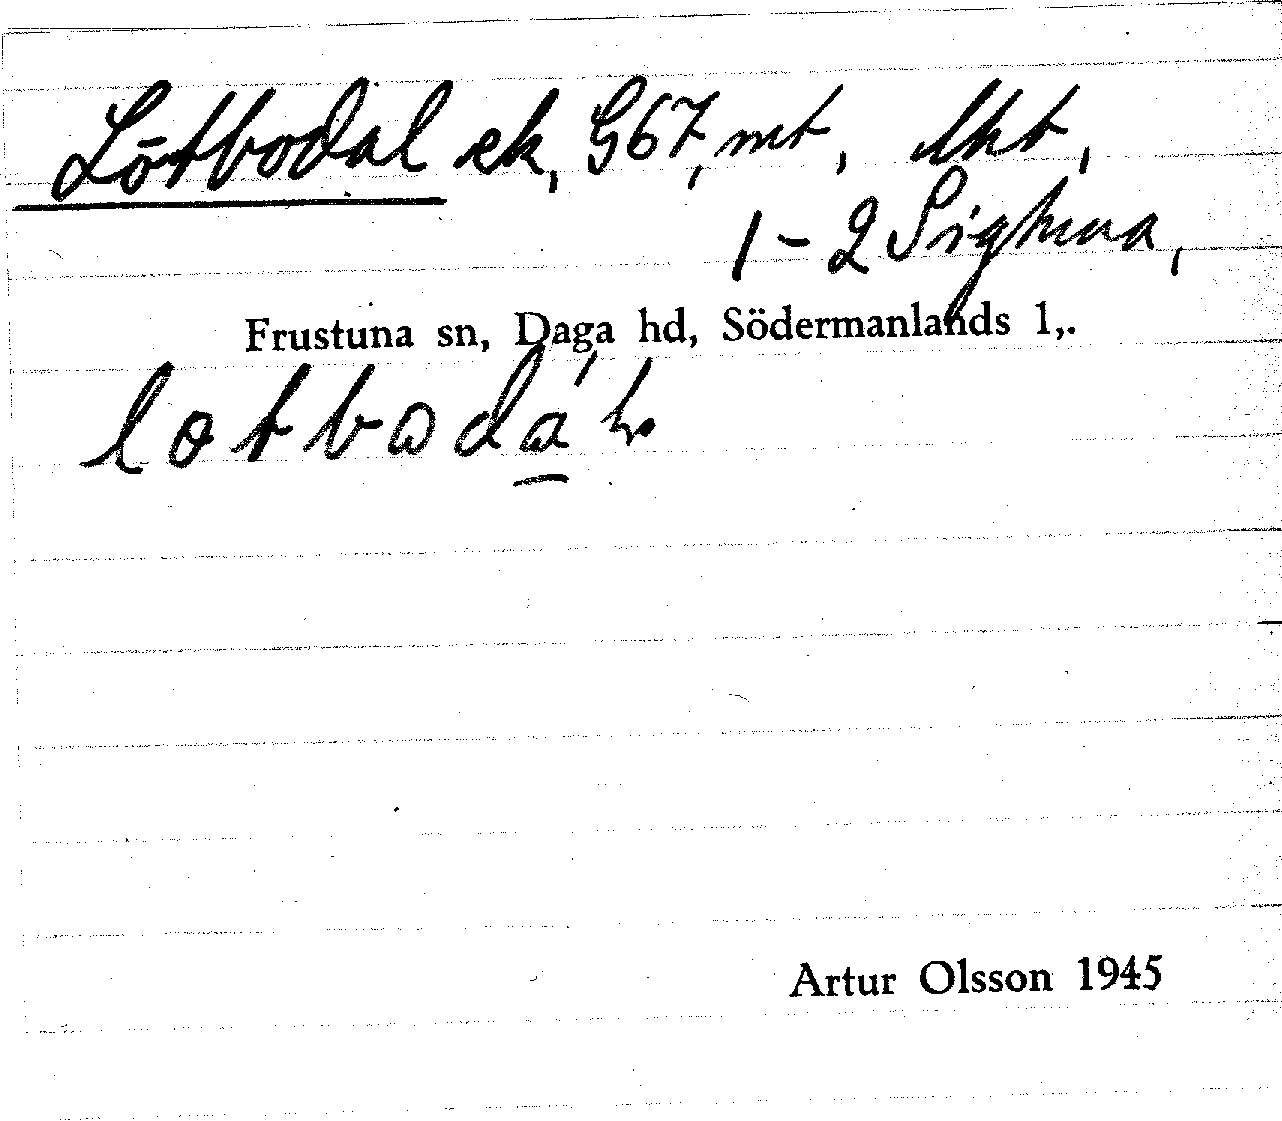 Lötbodal ek, G67, mt, lkt,
1-2 Sighnra,
Frustuna sn, Daga hd, Södermanlands l,.
Artur Olsson 1945